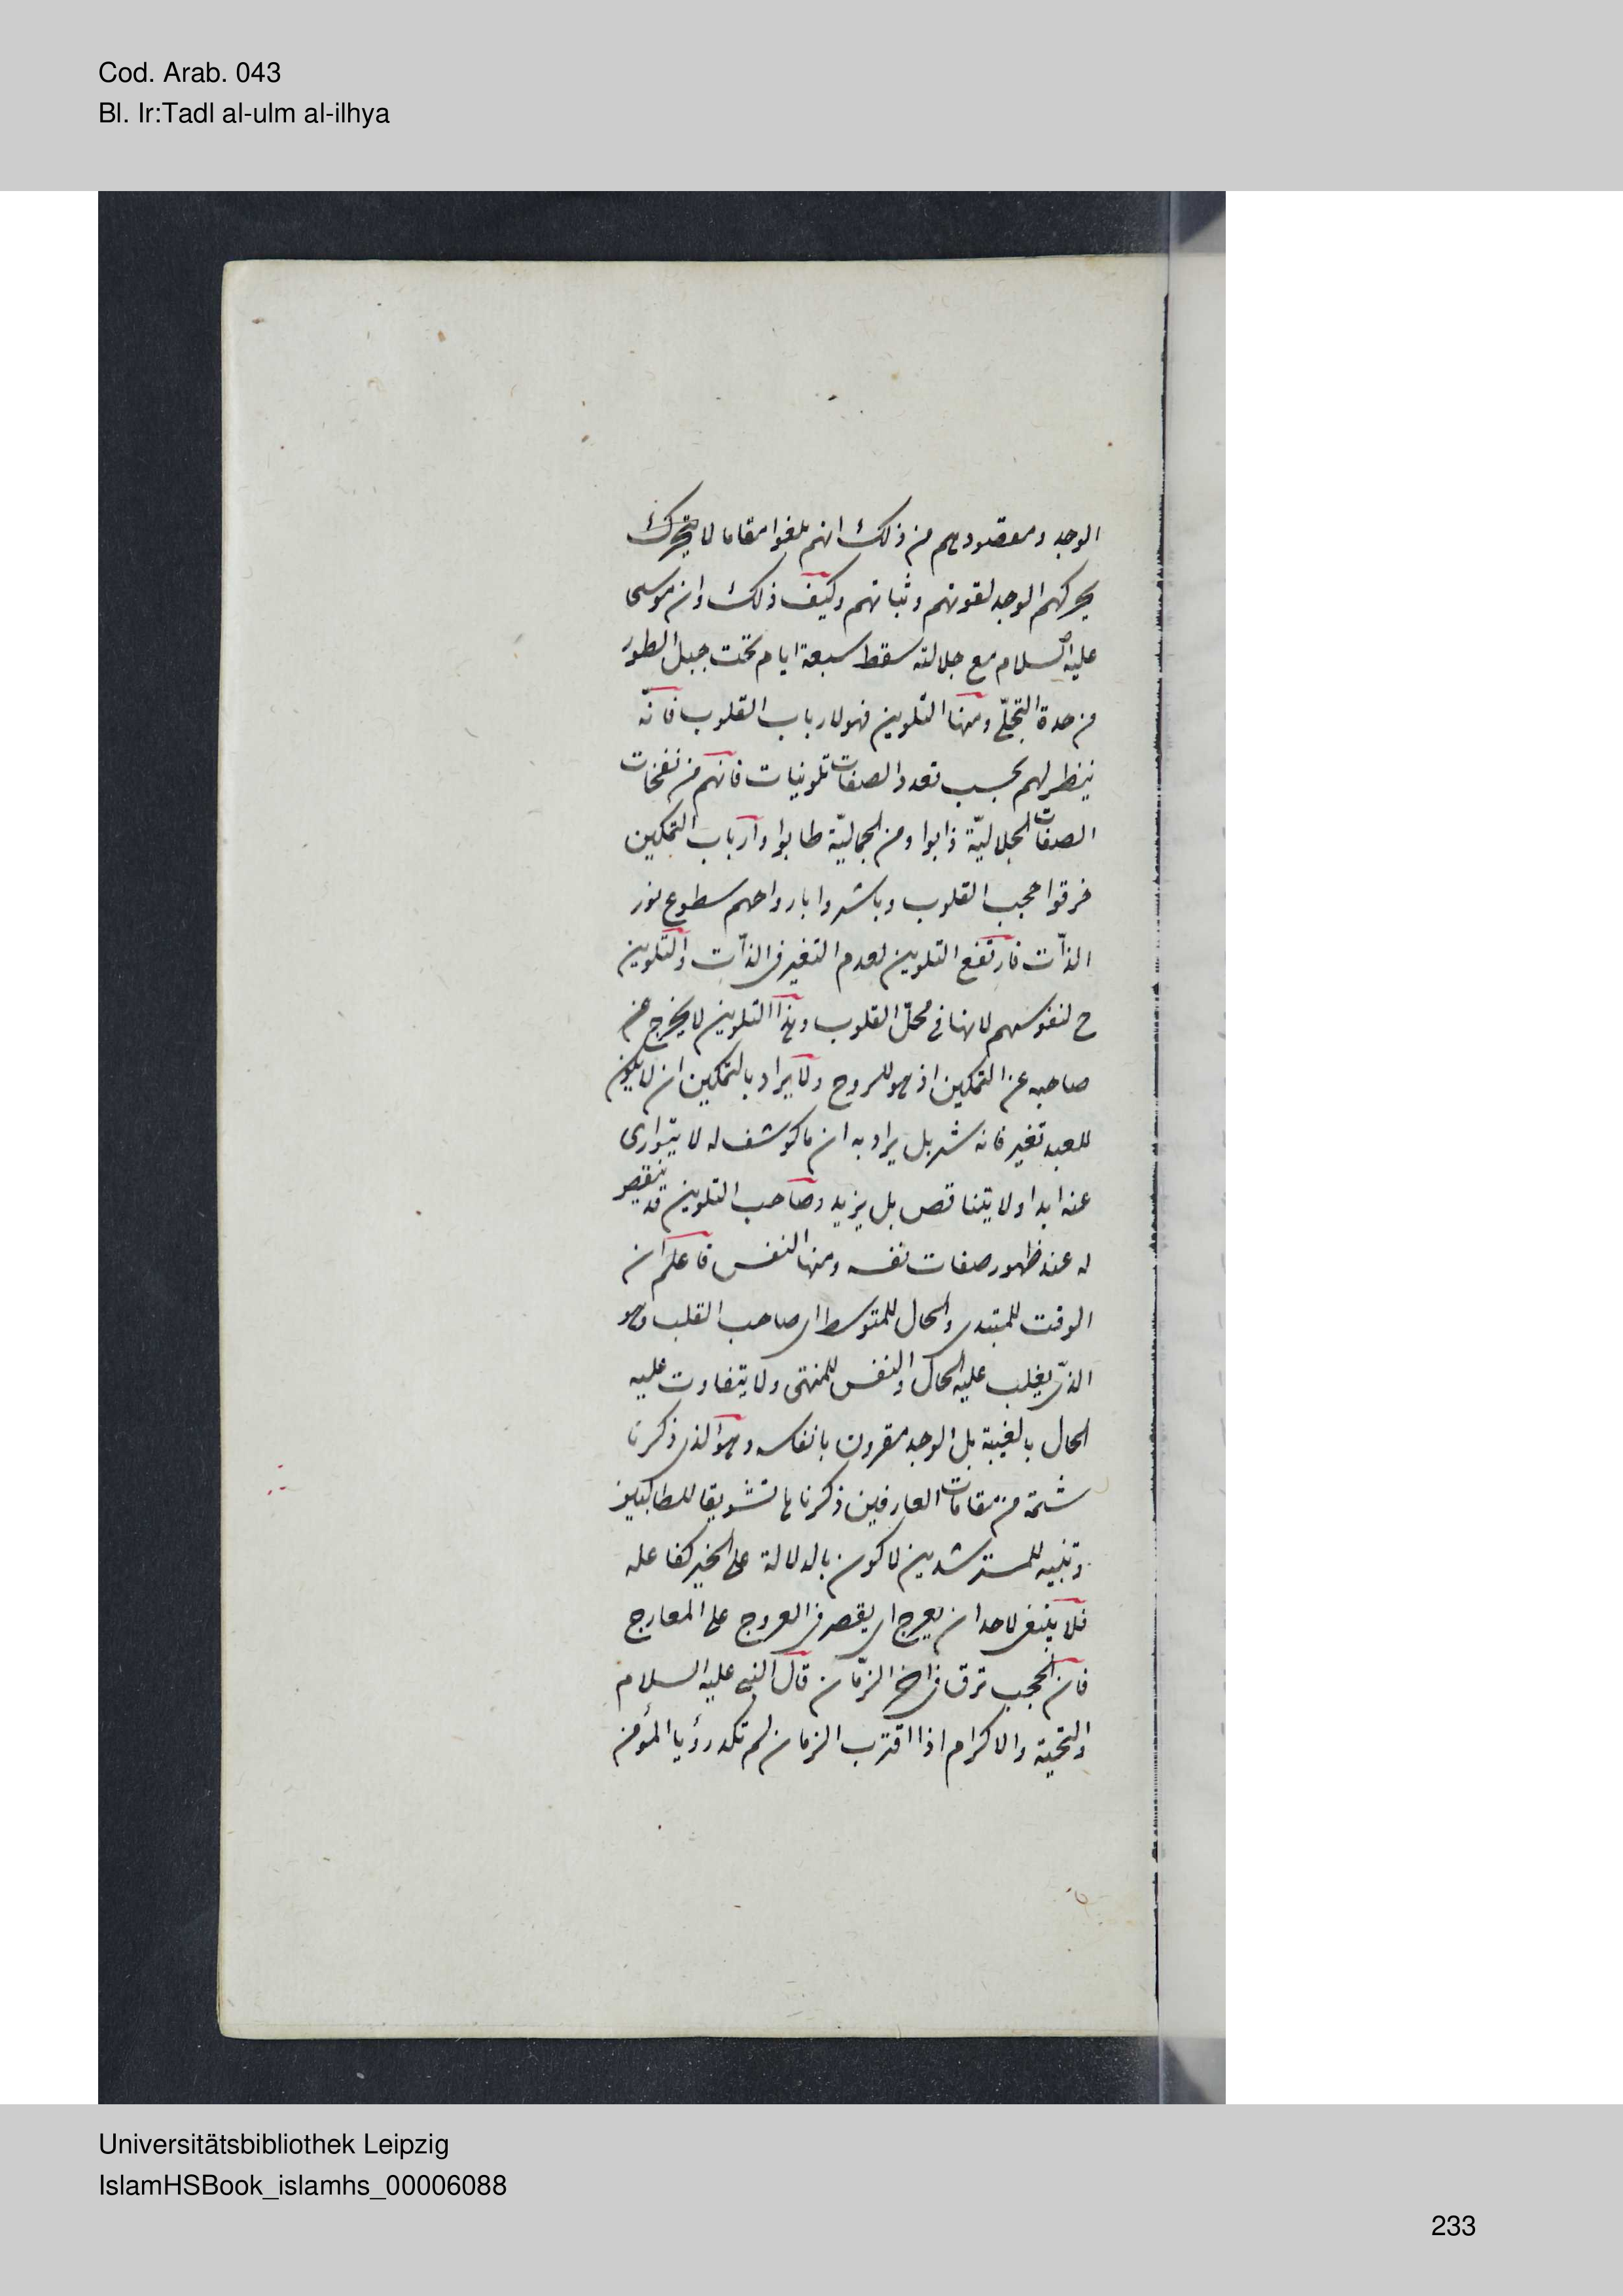 Cod. Arab. 043
Bl. Ir:Tadl al-ulm al-ilhya
الوجد ومعقصودهم من ذلك انهم بلغوا مقاما لا يتحرك
يحركهم الوجد لقوتهم وثباتهم وكيف ذلك وان موسى
عليه السلام مع جلالته سقط سبعة ايام تحت جبل الطور
من حدة التجلّي ومنها التلوين فهو لارباب القلوب فانّه
ينظر لهم بحسب تعدد الصفات تلوينات فانهم من نفخات
الصفات الجلاليّة ذابوا ومن الجماليّة طابوا وارباب التمكين
خرقوا حجب القلوب وباشروا بارواحهم سطوع نور
الذات فارتفع التلوين لعدم التغير فى الذات والتلوين
ح لنفوسهم لانها فى محلّ القلوب وهذا التلوين لا يخرج عن
صاحبه عن التمكين اذ هو للروح ولا يراد بالتمكين ان لا يكون
للعبد تغير فانه بشر بل يراد به ان ما كوشف له لا يتوارى
عنه ابدا ولا يتناقص بل يزيد وصاحب التلوين قد ينقص
له عند ظهور صفات نفسه ومنها النفس فاعلم ان
الوقت للمبتدى والحال للمتوسط اى صاحب القلب وهو
الذى يغلب عليه الحال والنفس للمنتهى ولا يتفاوت عليه
الحال بالغيبة بل الوجد مقرون بانفاسه وهو الذى ذكرنا
شمّة من مقامات العارفين ذكرناها تشويقا للطالبين
وتنبيه للمسترشدين لاكون بالدلالة على الخير كفاعله
فلا ينبغى لاحد ان يعرج اى يقصر فى العروج على المعارج
فان الحجب ترق فى اخ الزمان قال النبى عليه السلام
والتحية والاكرام اذا اقترب الزمان لم تكد رؤيا المؤمن
Universitätsbibliothek Leipzig
IslamHSBook_islamhs_00006088
233